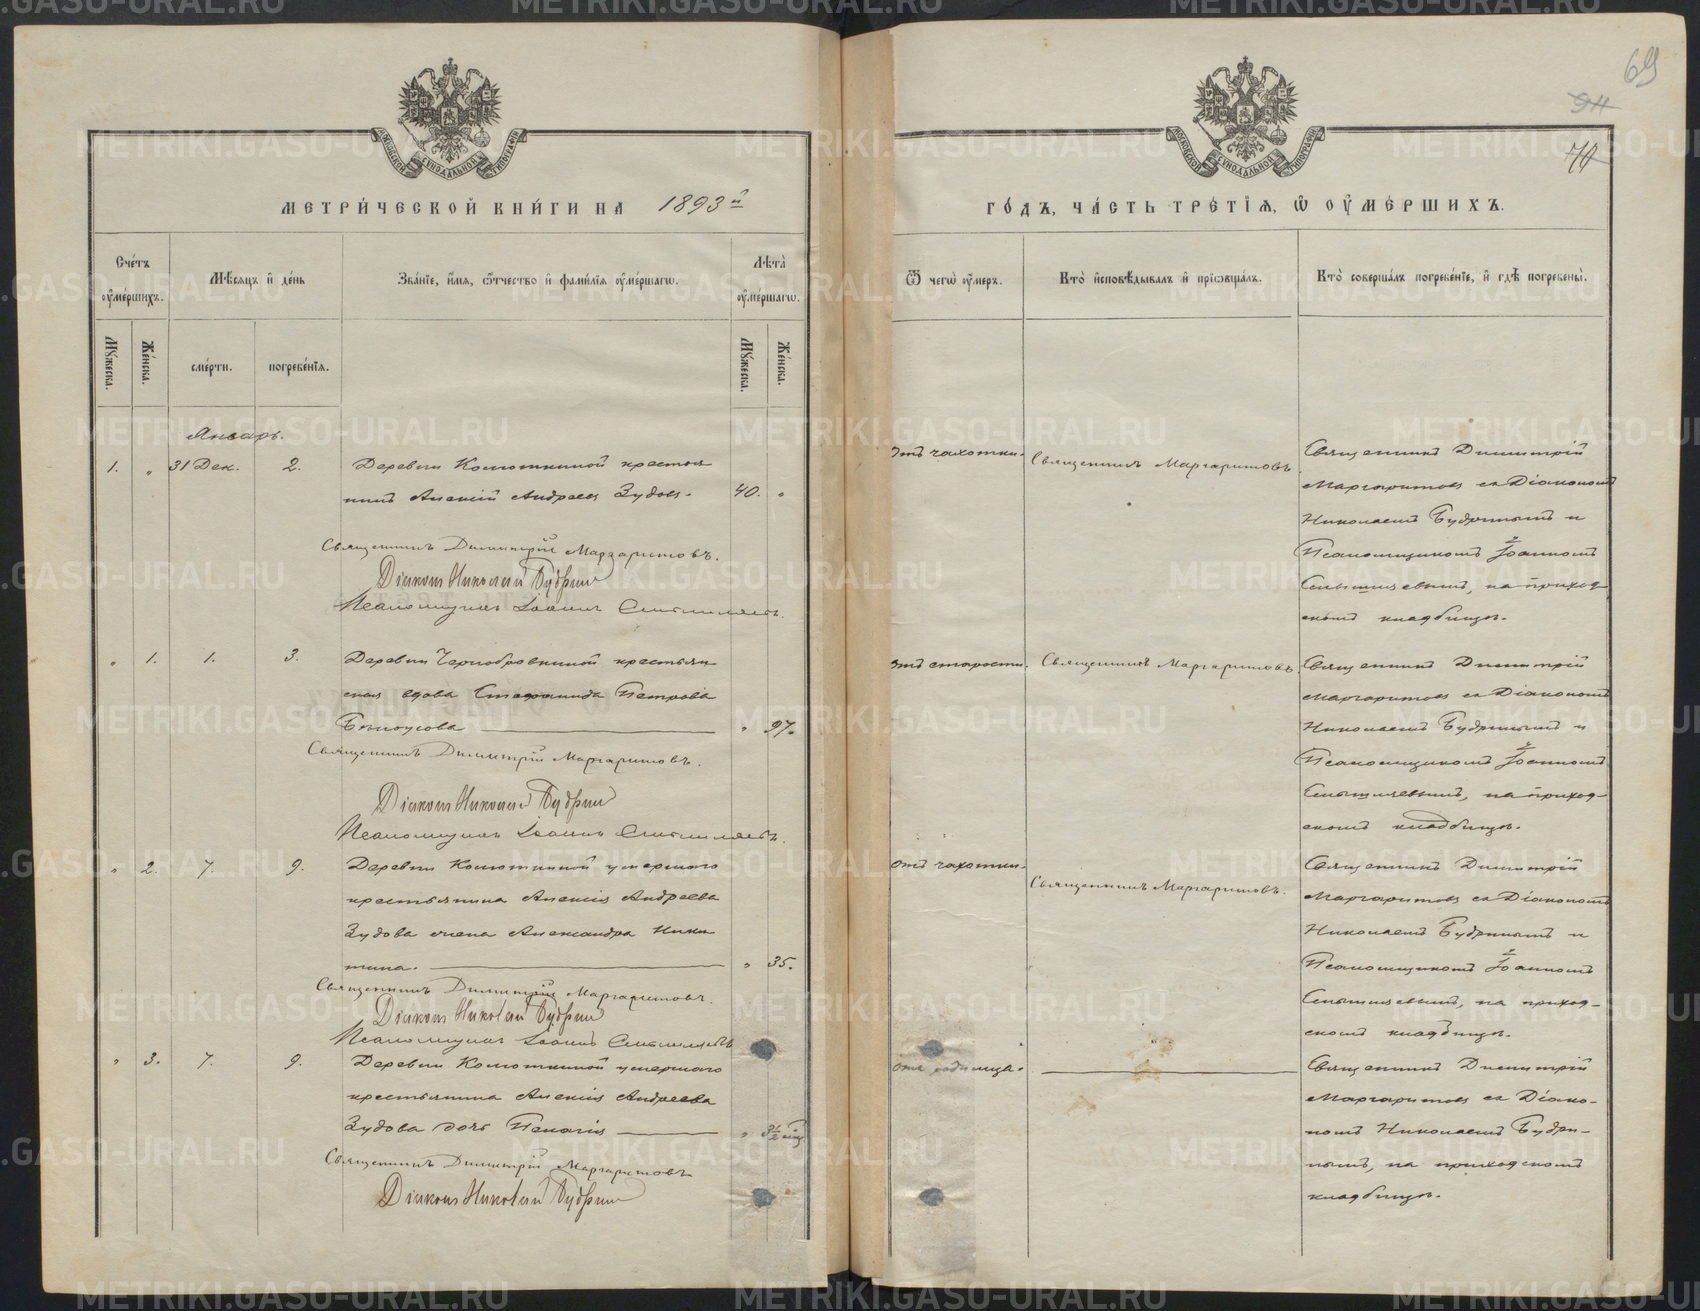 69
74
МОСКОВСКОЙ СУНОДАЛЬНОЙ ТИПОГРАФІИ
МОСКОВСКОЙ СУНОДАЛЬНОЙ ТИПОГРАФІИ
МЕТРИ́ЧЕСКОЙ КНИ́ГИ НА 1893 й
ГО́ДЪ, ЧА́СТЬ ТРЕ́ТІѦ, Ѡ҆ ОУ҆МЕ́РШИХЪ.
Сче́тъ оу҆ме́ршихъ.
Мѣ́сѧцъ и҆ де́нь
Зва́нїе, и҆́мѧ, ѻ҆́тчество и҆ фами́лїѧ оу҆ме́ршагѡ.
Лѣ́та оу҆ме́ршагѡ.
Ѿ чегѡ̀ оу҆́меръ.
Кто̀ и҆сповѣ́дывалъ и҆ прїѡбща́лъ.
Кто̀ соверша́лъ погребе́нїе, и҆ гдѣ̀ погребены̀.
Мꙋ́жеска.
Же́нска.
сме́рти.
погребе́нїѧ.
Мꙋ́жеска.
Же́нска.
Январь.
1. " 31 Дек. 2. Деревни Колюткиной крестья
нинъ Алексій Андреевъ Зудовъ. 40. "
Священникъ Димитрій Маргаритовъ.
Діаконъ Николай Будринъ
Псаломщикъ Іоаннъ
Отъ чахотки.
Священникъ Маргаритовъ.
Священникъ Димитрій
Маргаритовъ съ Діакономъ
Николаемъ Будринымъ и
Псаломщикомъ Іоанномъ
на приход-
скомъ кладбищѣ.
" 1. 1. 3. Деревни Чернобровкиной крестьян
ская вдова Стефанида Петрова
Бѣлоусова " 97.
Священникъ Димитрій Маргаритовъ.
Діаконъ Николай Будринъ
Псаломщикъ Іоаннъ
отъ старости.
Священникъ Маргаритовъ.
Священникъ Димитрій
Маргаритовъ съ Діакономъ
Николаемъ Будринымъ и
Псаломщикомъ Іоанномъ
на приход-
скомъ кладбищѣ.
" 2. 7. 9. Деревни Колюткиной умершаго
крестьянина Алексія Андреева
Зудова жена Александра Ники
тина. " 35.
Священникъ Димитрій Маргаритовъ.
Діаконъ Николай Будринъ
Псаломщикъ Іоаннъ
отъ чахотки.
Священникъ Маргаритовъ.
Священникъ Димитрій
Маргаритовъ съ Діакономъ
Николаемъ Будринымъ и
Псаломщикомъ Іоанномъ
на приход-
скомъ кладбищѣ.
" 3. 7. 9. Деревни Колюткиной умершаго
крестьянина Алексія Андреева
Зудова дочь Пелагія " 3½
Священникъ Димитрій Маргаритовъ
Діаконъ Николай Будринъ
отъ родимца.
Священникъ Димитрій
Маргаритовъ съ Діако-
номъ Николаемъ Будри-
нымъ, на приходскомъ
кладбищѣ.
METRIKI.GASO-URAL.RU